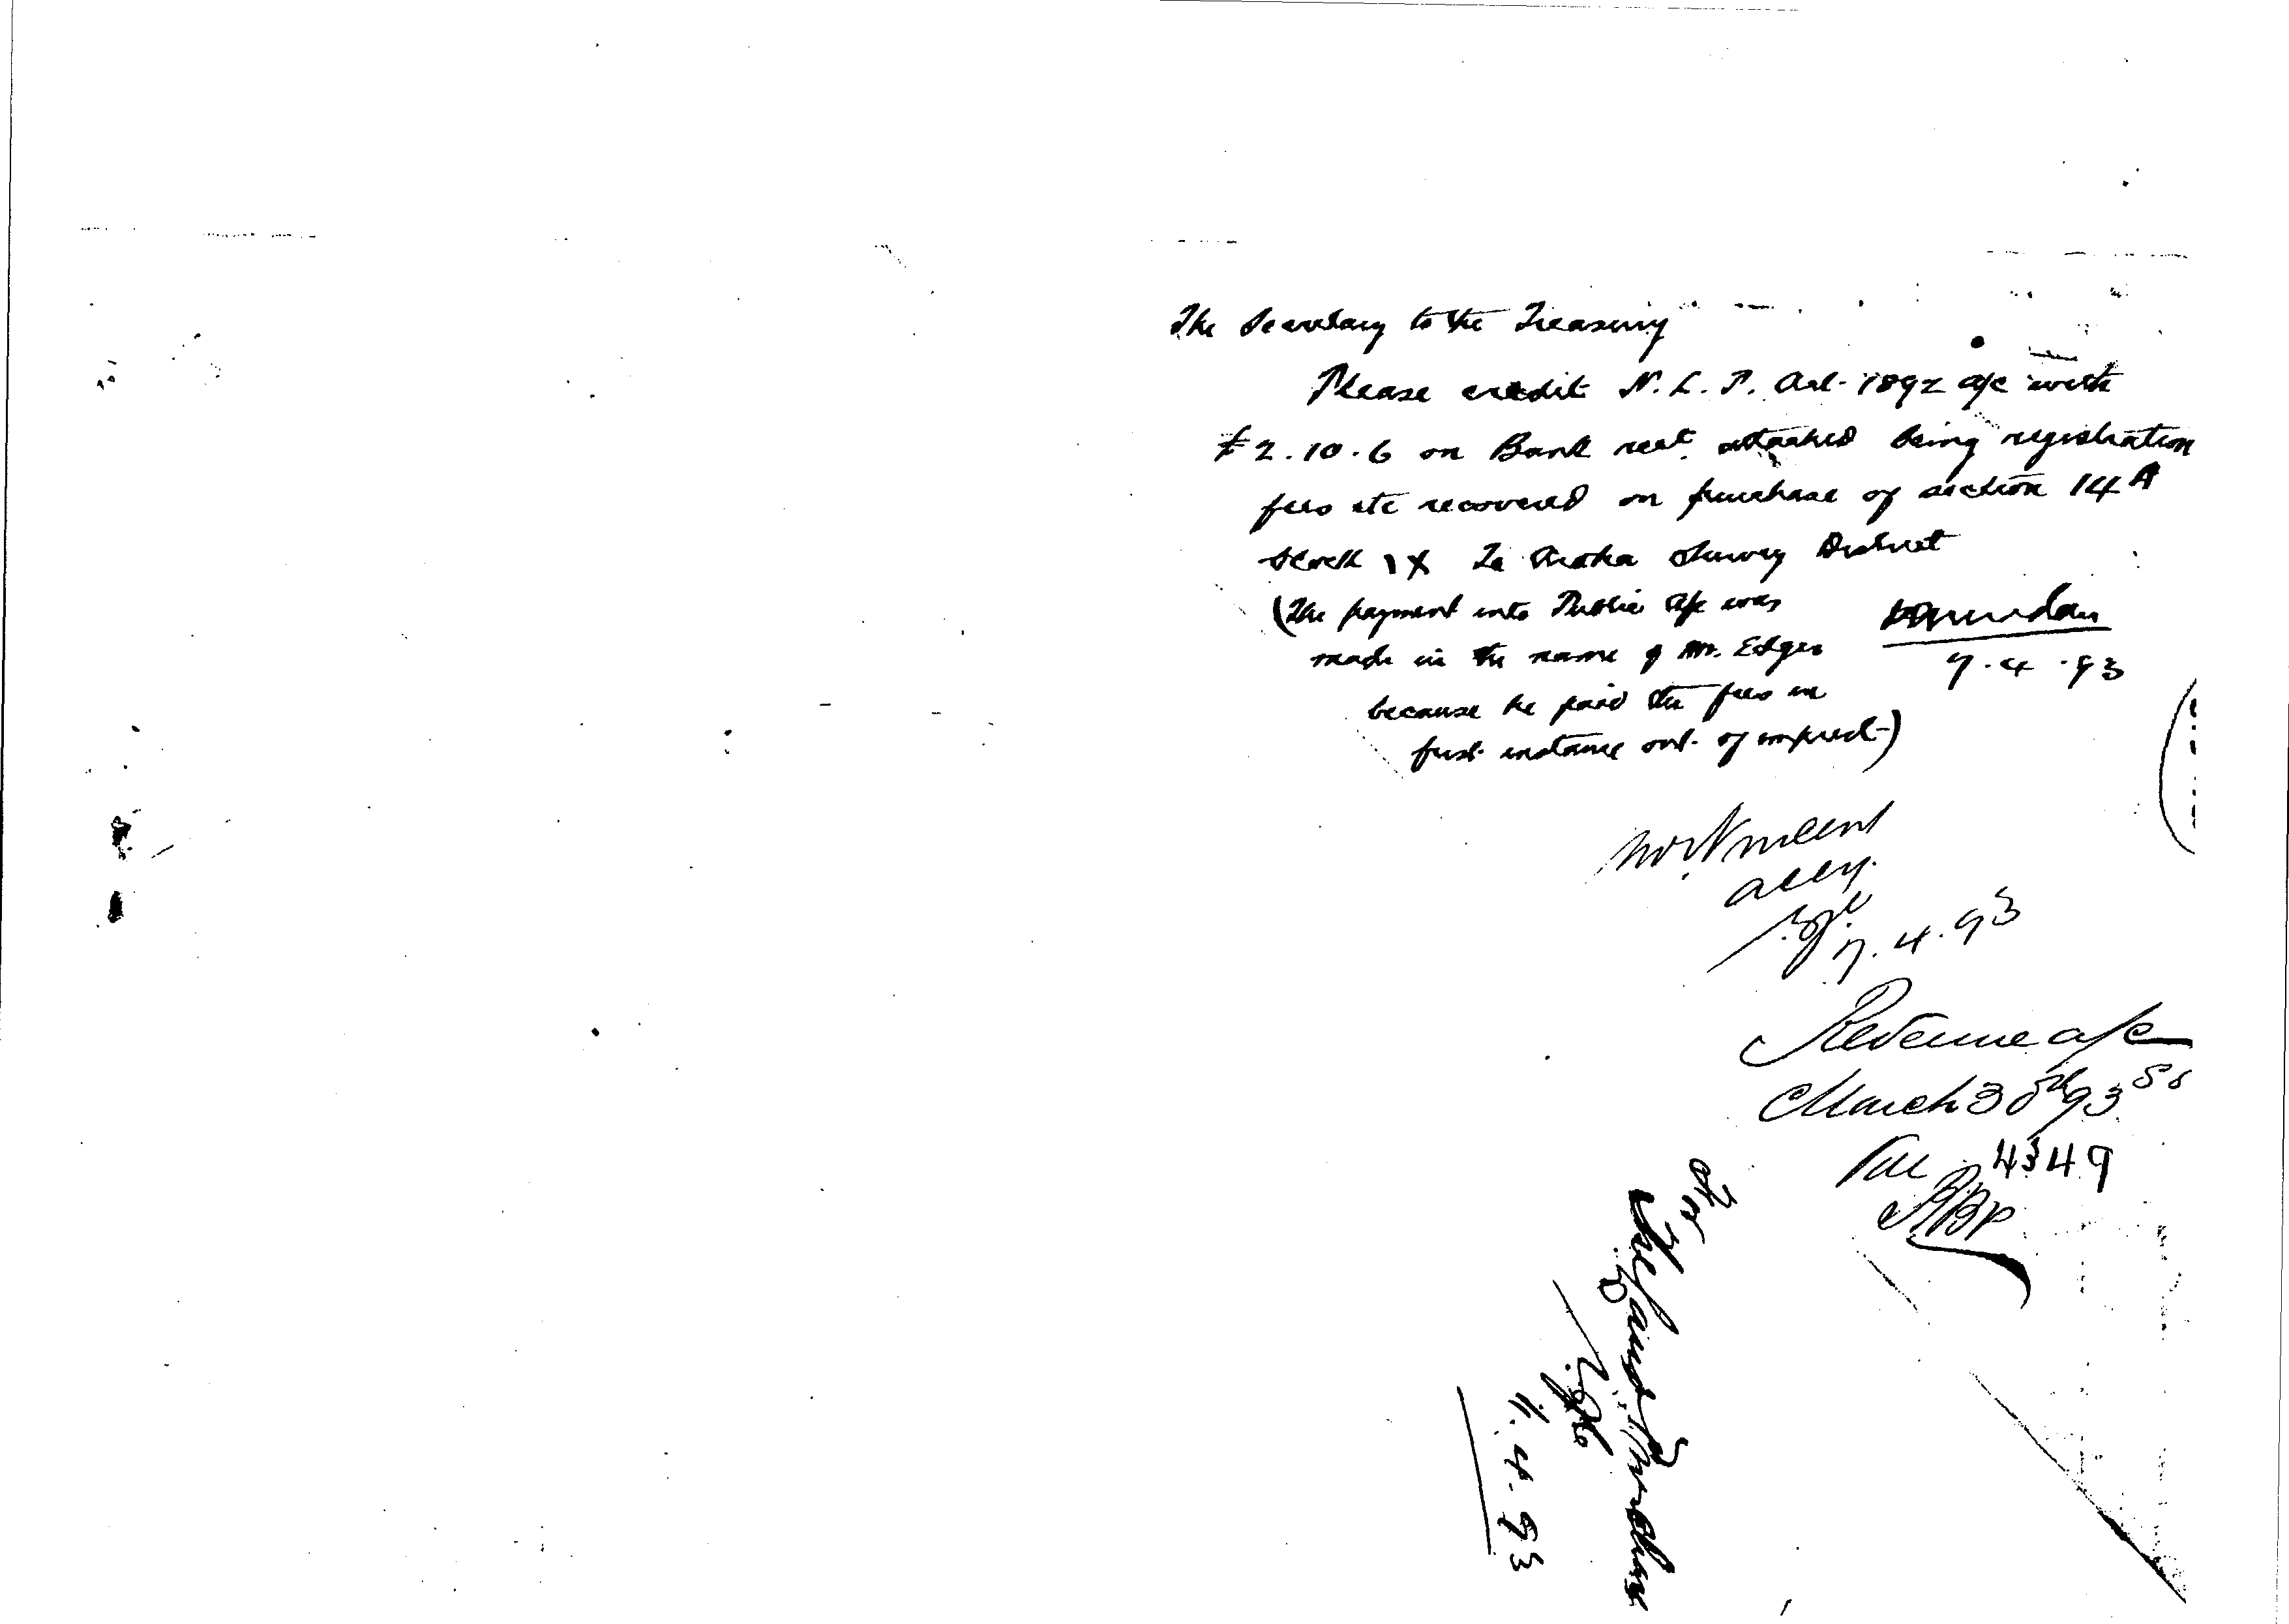 The Secretary to the Treasury
Please credit N. L. P. Act 1892 a/c with
£2.10.6 on Bank rect. attached being registration
fees etc recovered on purchase of section 14A
Block IX Te Aroha Survey District
(The payment into Public a/c was
made in the name of Mr. Edger
because he paid the fees in
first instance out of imprest)
7.4.93
7.4.93
Revenue a/c
March 30th 93
4349
ABP
The Land Purchase
11.4.93